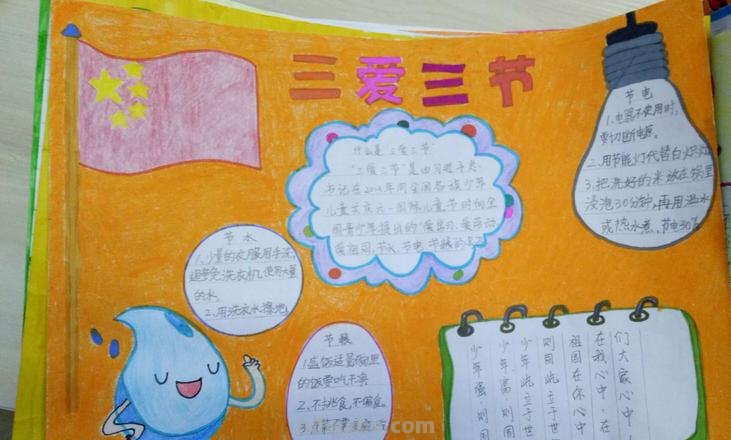 三爱三节
什么是"三爱三节"
"三爱三节"是由习近平总
书记在2014年同全国各族少年
儿童共庆六一国际儿童节时向全
国青少年提出的"爱学习、爱劳动
爱祖国,节水、节电、节粮的
节电
1.电器不使用时,
要切断电源。
2.用节能灯代替白炽灯
3.把洗好的米放在锅里
浸泡30分钟,再用温水
或热水煮,节电30%
节水
1.少量的衣服用手洗,
避免洗衣机使用大量
的水。
2.用洗衣水擦地
节粮
1.盛饭适量碗里
的饭要吃干净
2.不挑食,不偏食。
3.点菜不要
们大家心中
在我心中,在
祖国在你心中
少年强,则国
.com